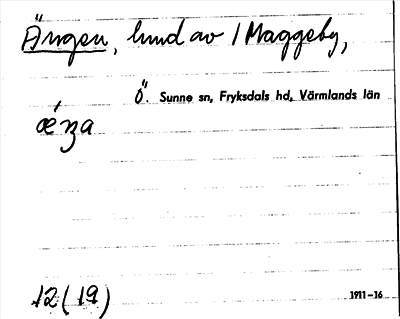 Ängen, lund av 1 Maggeby,
Ö. Sunne sn, Fryksdals hd, Värmlands län
ǽŋa
12(19)
1911-16